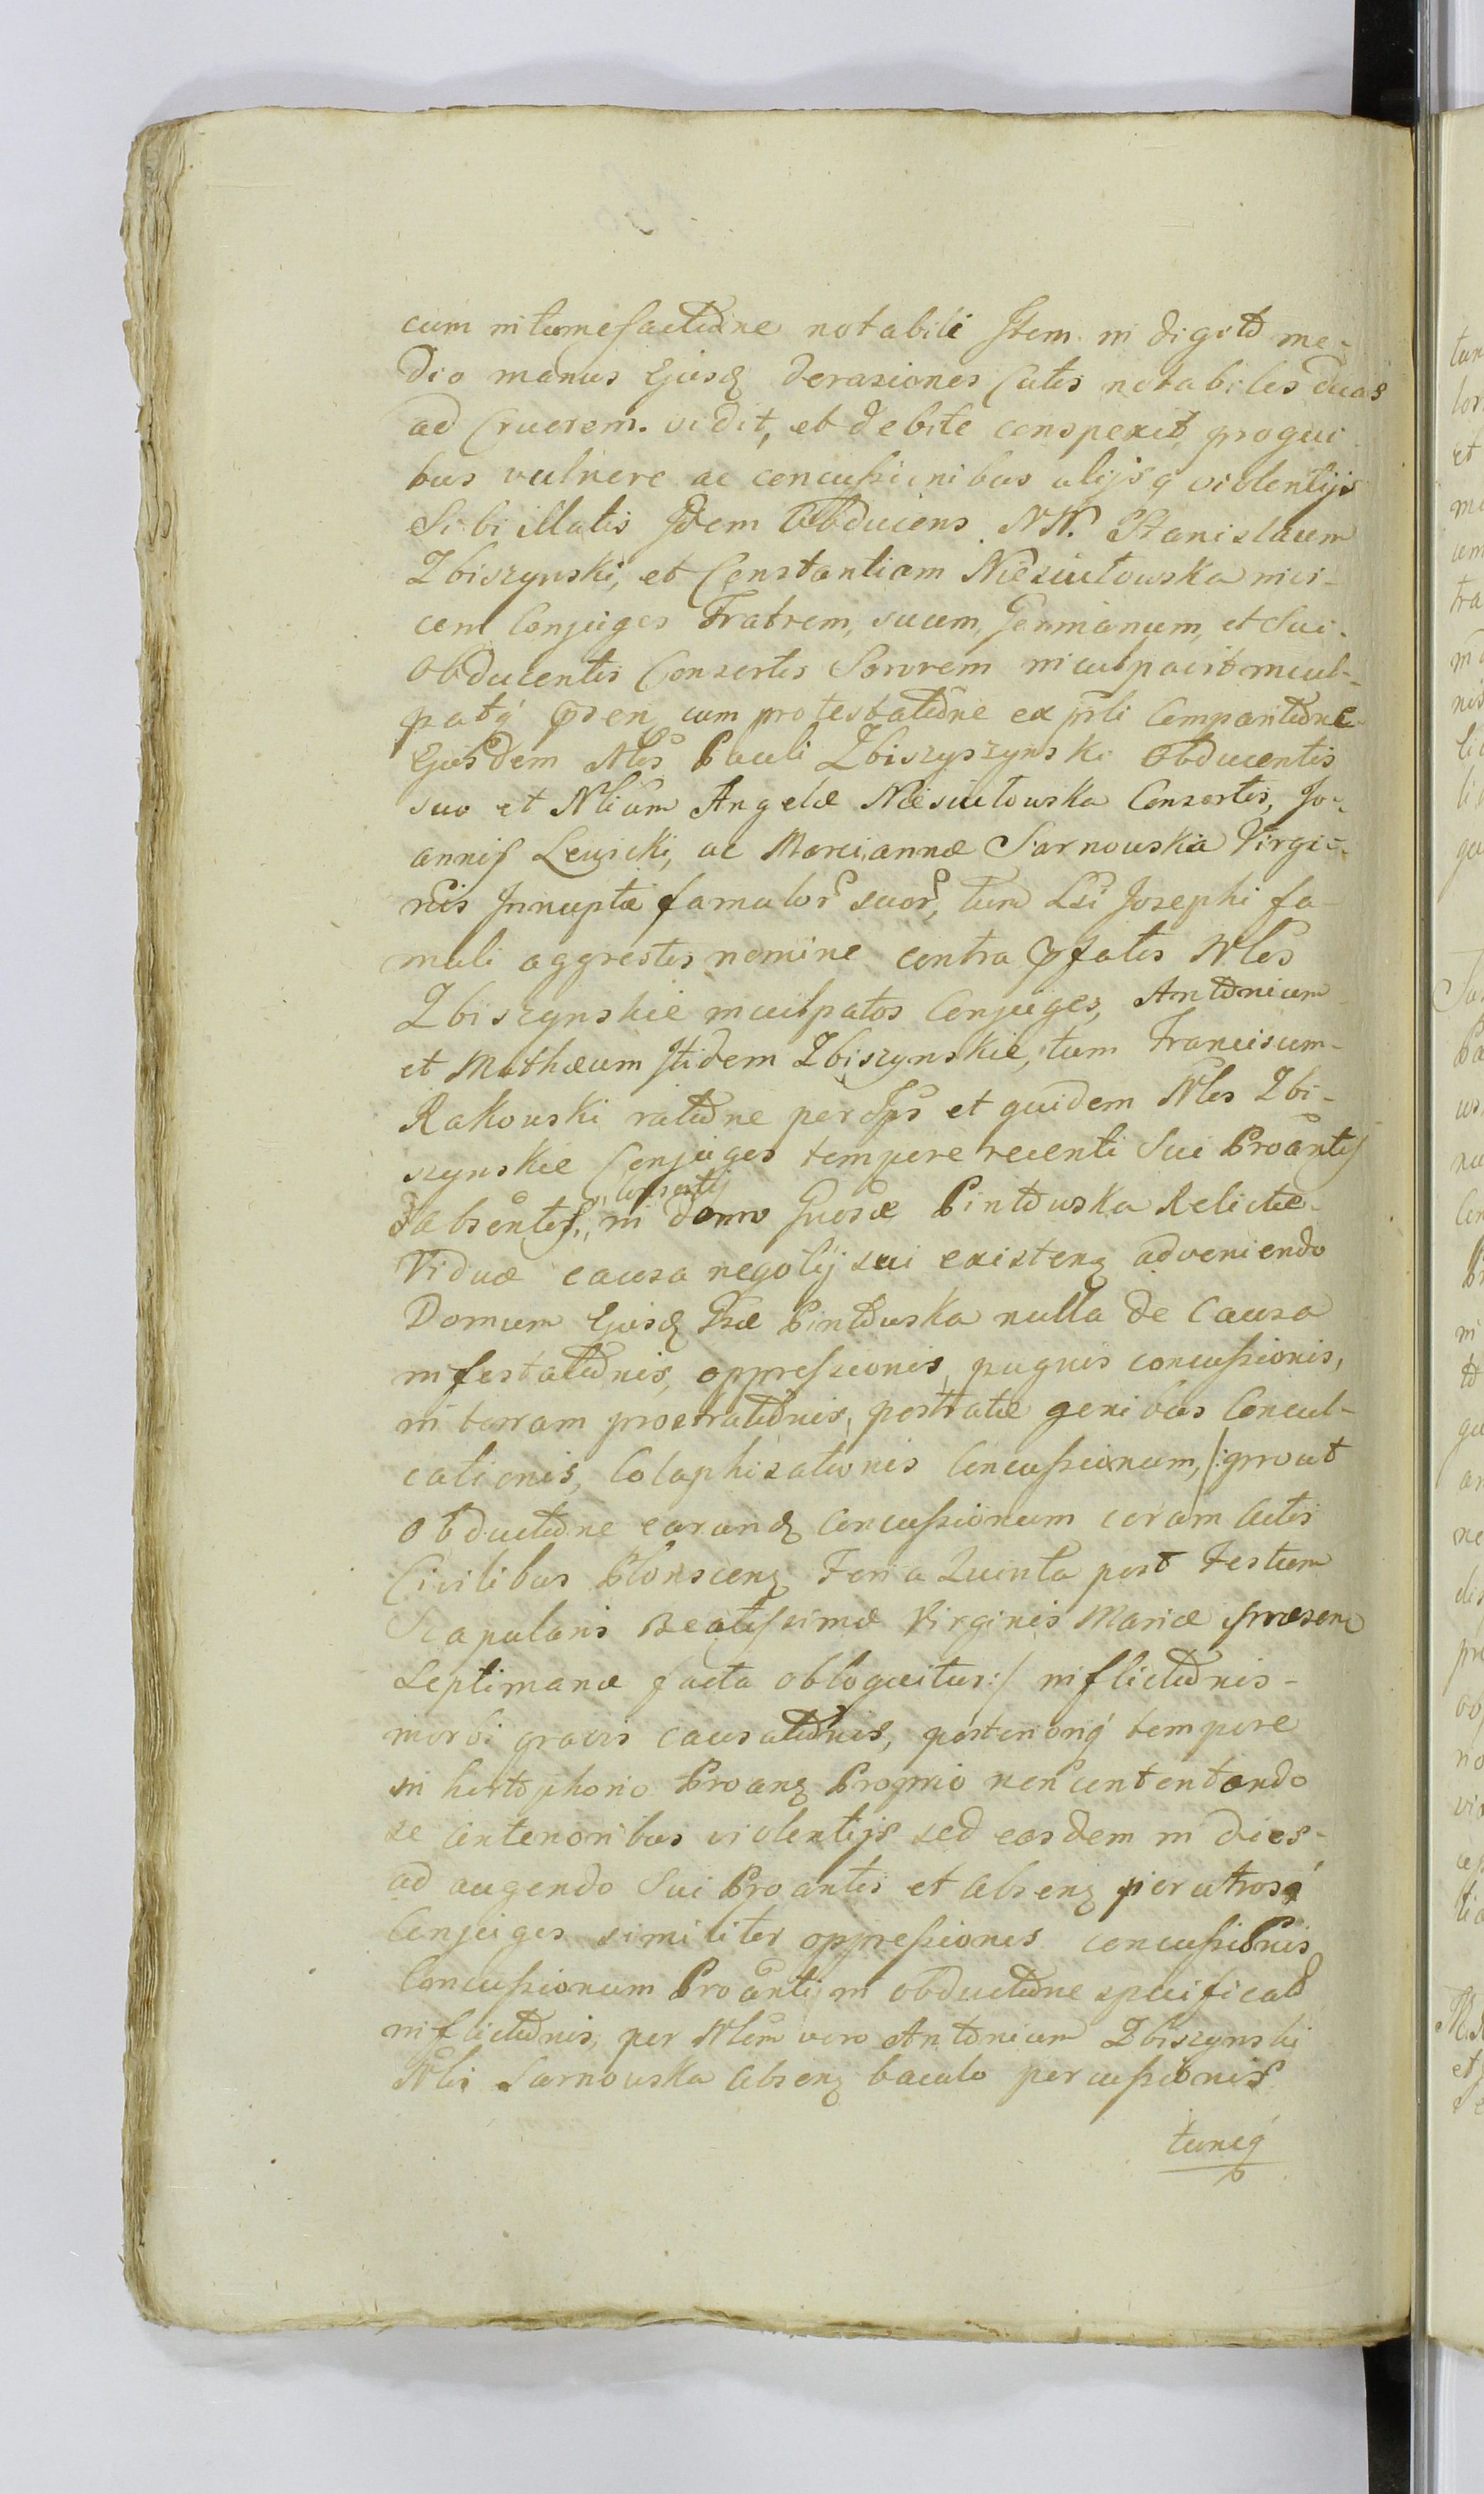 cum intumefactione notabili Item in digito me-
dio manus Ejusd derasiones Cutis notabiles duas
ad Cruorem vidit, et debite conspexit, pro qui-
bus vulnere ac concussionibus alijsq violentijs
Sibi illatis Idem Obducens NN. Stanislaum
Zbiszynski, et Constantiam Niesiułowska invi-
cem Conjuges Fratrem, suum, Germanum, et Sui
Obducentis Consortis Sororem inculpavit incul-
patq iden cum protestatione ex prsli Comparitione
Ejusdem Nlis Pauli Zbiszyszynski Obducentis
suo et Nlium Angelæ Niesiułowska Consortis, Jo-
annis Lewicki, ac Mariannæ Sarnowska Virgi-
nis Innuptæ famulor suor, tum Lsi Josephi fa-
muli aggrestis nomine contra pfatos Nles
Zbiszynskie inculpatos Conjuges, Antonium
et Mathæum Itidem Zbiszynskie, tum Franciscum
Rakowski ratione per Ips et quidem Nles Zbi-
szynskie Conjuges tempore recenti Sui Proantis
absentis, Consortis in domo Gnosæ Pintowska Relictæ
Viduæ causa negotij sui existenz adveniendo
Domum Ejusd Gsæ Pintowska nulla de Causa
infestationis, oppressionis, pugnis concussionis,
in terram prostrationis, postratæ genibus Concul-
cationis, Colaphisationis Concussionum, /: prout
Obductione earund Concussionum coram Actis
Civilibus Płonscenz Feria Quinta post Festum
Scapularis Beatissimæ Virginis Mariæ præsen
Septimanæ facta obloquitur :/ inflictionis
morbi gravis causationis, posterioriq tempore
in hortophorio Proanz Proprio non contentando
se anterioribus violentijs sed easdem in dies
ad augendo Sui Proantis et absenz per utrosq
Conjuges similiter oppressionis concussionis
Concussionum Proanti in obductione specificato
inflictionis, per Nlem vero Antonium Zbiszynski
Nli Sarnowska absenz baculo percussionis
tuncq